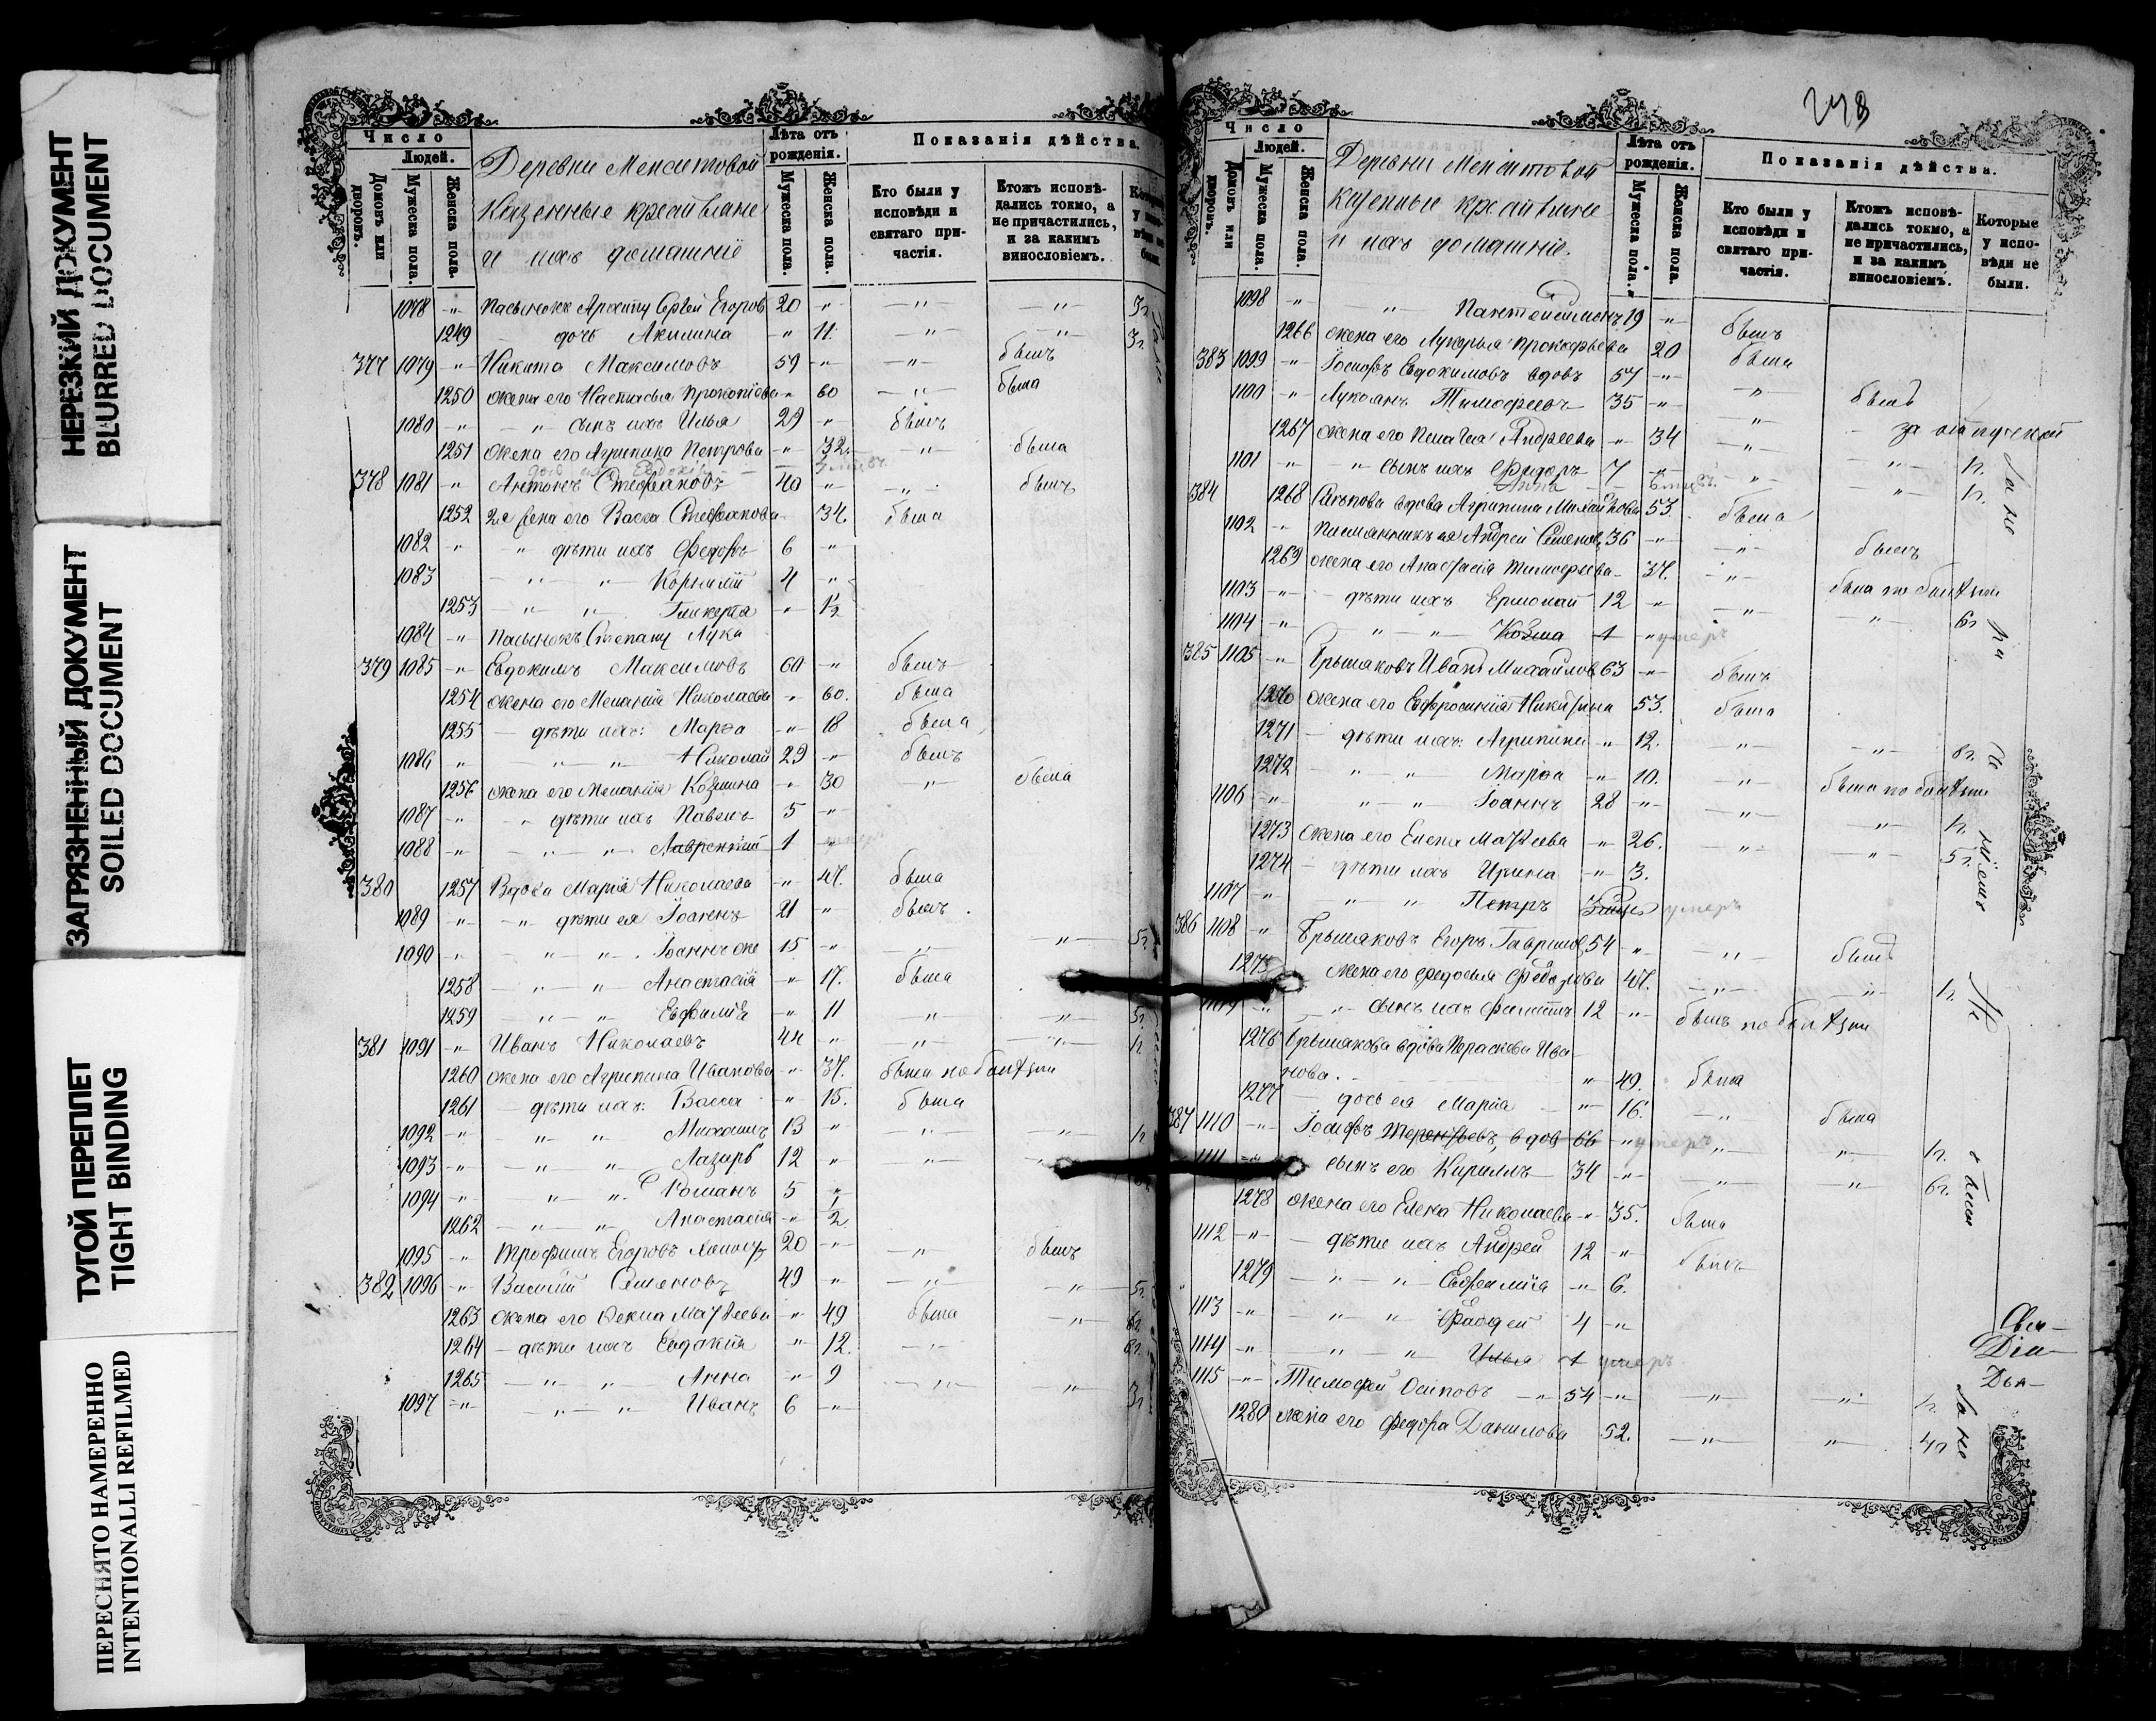 НЕРЕЗКИЙ ДОКУМЕНТ
BLURRED DOCUMENT
ЗАГРЯЗНЕННЫЙ ДОКУМЕНТ
SOILED DOCUMENT
ТУГОЙ ПЕРЕПЛЕТ
TIGHT BINDING
ПЕРЕСНЯТО НАМЕРЕННО
INTENTIONALLI REFILMED
Число
Людей.
Домовъ или дворовъ.
Мужеска пола.
Женска пола.
Деревни
Казенные крестьяне
и ихъ домашніе
Лѣта отъ рожденія.
Мужеска пола.
Женска пола.
Показанія дѣйства.
Кто были у исповѣди и святаго причастія.
Ктожъ исповѣдались токмо, а не причастились, и за какимъ винословіемъ.
1078 -"- Пасынокъ Сергѣй Егоровъ 20 -"- -"- -"-
1249 дочь Акилина -"- 11. -"- -"-
377 1079 -"- Никита Максимовъ 59 -"- -"- былъ
1250 жена его Настасья Прокопіева -"- 60 -"- была
1080 -"- -"- сынъ ихъ Илья 29 -"- былъ
1251 жена его Агрипина Петрова -"- 32 -"- была
378 1081 -"- Антонъ Стефановъ 40 -"- -"- былъ
1252 жена его Васса Стефанова 34. была
1082 -"- -"- дѣти ихъ Федоръ 6 -"-
1083 -"- -"- Корнилій 4 -"-
1253 -"- -"- Гликерія -"- 1/2
1084 -"- Пасынокъ Степану Лука
379 1085 -"- Евдокимъ Максимовъ 60 -"- былъ
1254 жена его Меланія Николаева -"- 60. была
1255 - дѣти ихъ: Марѳа -"- 18 была
1086 -"- -"- -"- Николай 29 -"- былъ
1256 жена его Меланія Козмина -"- 30 -"- была
1087 -"- -"- дѣти ихъ Павелъ 5 -"-
1088 -"- -"- -"- Лаврентій 1 -"-
380 1257 Вдова Марія Николаева -"- 47. была
1089 -"- -"- дѣти ея Іоаннъ 21 -"- былъ
1090 -"- -"- -"- Іоаннъ же 15 -"- -"- -"- 5г.
1258 -"- -"- Анастасія -"- 17. была
1259 -"- -"- Евфимія -"- 11 -"- -"- 5г.
381 1091 -"- Иванъ Николаевъ 44 -"- -"- -"-
1260 жена его Агрипина Иванова -"- 37. была по болѣзни
1261 - дѣти ихъ: Васса -"- 15. была
1092 -"- -"- -"- Михаилъ 13 -"- -"- -"-
1093 -"- -"- -"- Лазарь 12 -"- -"- -"-
1094 -"- -"- -"- Романъ 5 -"-
1262 -"- -"- Анастасія -"- 2
1095 -"- Трофимъ Егоровъ 20 -"- -"- былъ
382 1096 -"- Василій Семеновъ 49 -"- -"- -"- 5г.
1263 жена его Ѳекла Матвѣева -"- 49 была -"- 6г.
1264 - дѣти ихъ Евдокія -"- 12. -"-
1265 -"- -"- Анна -"- 9 -"-
1097 -"- -"- -"- Иванъ 6 -"- -"- 3г.
248
Число
Людей.
Домовъ или дворовъ.
Мужеска пола.
Женска пола.
Деревни
Казенные крестьяне
и ихъ домашніе.
Лѣта отъ рожденія.
Мужеска пола.
Женска пола.
Показанія дѣйства.
Кто были у исповѣди и святаго причастія.
Ктожъ исповѣдались токмо, а не причастились, и за какимъ винословіемъ.
Которые у исповѣди не были.
1098 -"- -"- Пантелеимонъ 19 -"- былъ
1266 жена его Лукерья Прокофьева 20 была
383 1099 -"- Іосифъ Евдокимовъ вдовъ 57 -"- -"- былъ
1100 -"- Лукіанъ Тимофеевъ 35 -"- -"- за отлучкой
1267 жена его Пелагея Андреева -"- 34 -"- -"- 1г.
1101 -"- -"- сынъ ихъ Федоръ 7 -"- -"- -"- 1г.
384 1268 вдова Агрипина Михайлова 53. была
1102 -"- Племянникъ ея Андрей Семеновъ 36 -"- -"- былъ
1269 жена его Анастасія Тимофеева 37. -"- была по болѣзни
1103 -"- дѣти ихъ Ермолай 12 -"- -"- -"- 6г
1104 -"- -"- -"- Козма 1 -"- умеръ
385 1105 -"- Грызаковъ Иванъ Михайловъ 63 -"- былъ
1270 жена его Евфросинія Никитина 53. была
1271 - дѣти ихъ: Агрипина -"- 12. -"- -"- 8г.
1272 -"- -"- Марѳа -"- 10. -"- была по болѣзни
1106 -"- -"- -"- Іоаннъ 28 -"- -"- -"- 1г.
1273 жена его Елена Матѳеева -"- 26. -"- -"- 5г.
1274 - дѣти ихъ Ирина -"- 3.
1107 -"- -"- -"- Петръ умеръ
386 1108 -"- Егоръ Гавриловъ 54 -"- -"- былъ
1275 жена его Федосья Федорова 47. -"- -"- 1г.
1109 -"- -"- сынъ ихъ 12 -"- былъ по болѣзни
1276 вдова Параскева Ива-
нова. -"- 49. была
1277 - дочь ея Марія -"- 16. -"- была
387 1110 -"- Іосифъ Терентьевъ, вдов 66 -"- умеръ -"- -"- 1г.
1111 -"- сынъ его Кириллъ 34 -"- -"- -"- 6г.
1278 жена его Елена Николаева -"- 35. была
1112 -"- - дѣти ихъ Андрей 12 -"- былъ
1279 -"- -"- Евфимія -"- 6.
1113 -"- -"- -"- Фаддей 4 -"-
1114 -"- -"- -"- Илья 1 умеръ
1115 -"- Тимофей Осиповъ -"- 54 -"- -"- -"- 1г.
1280 жена его Федора Данилова 52. -"- -"- 4г.
Свя-
Діа-
Дья-